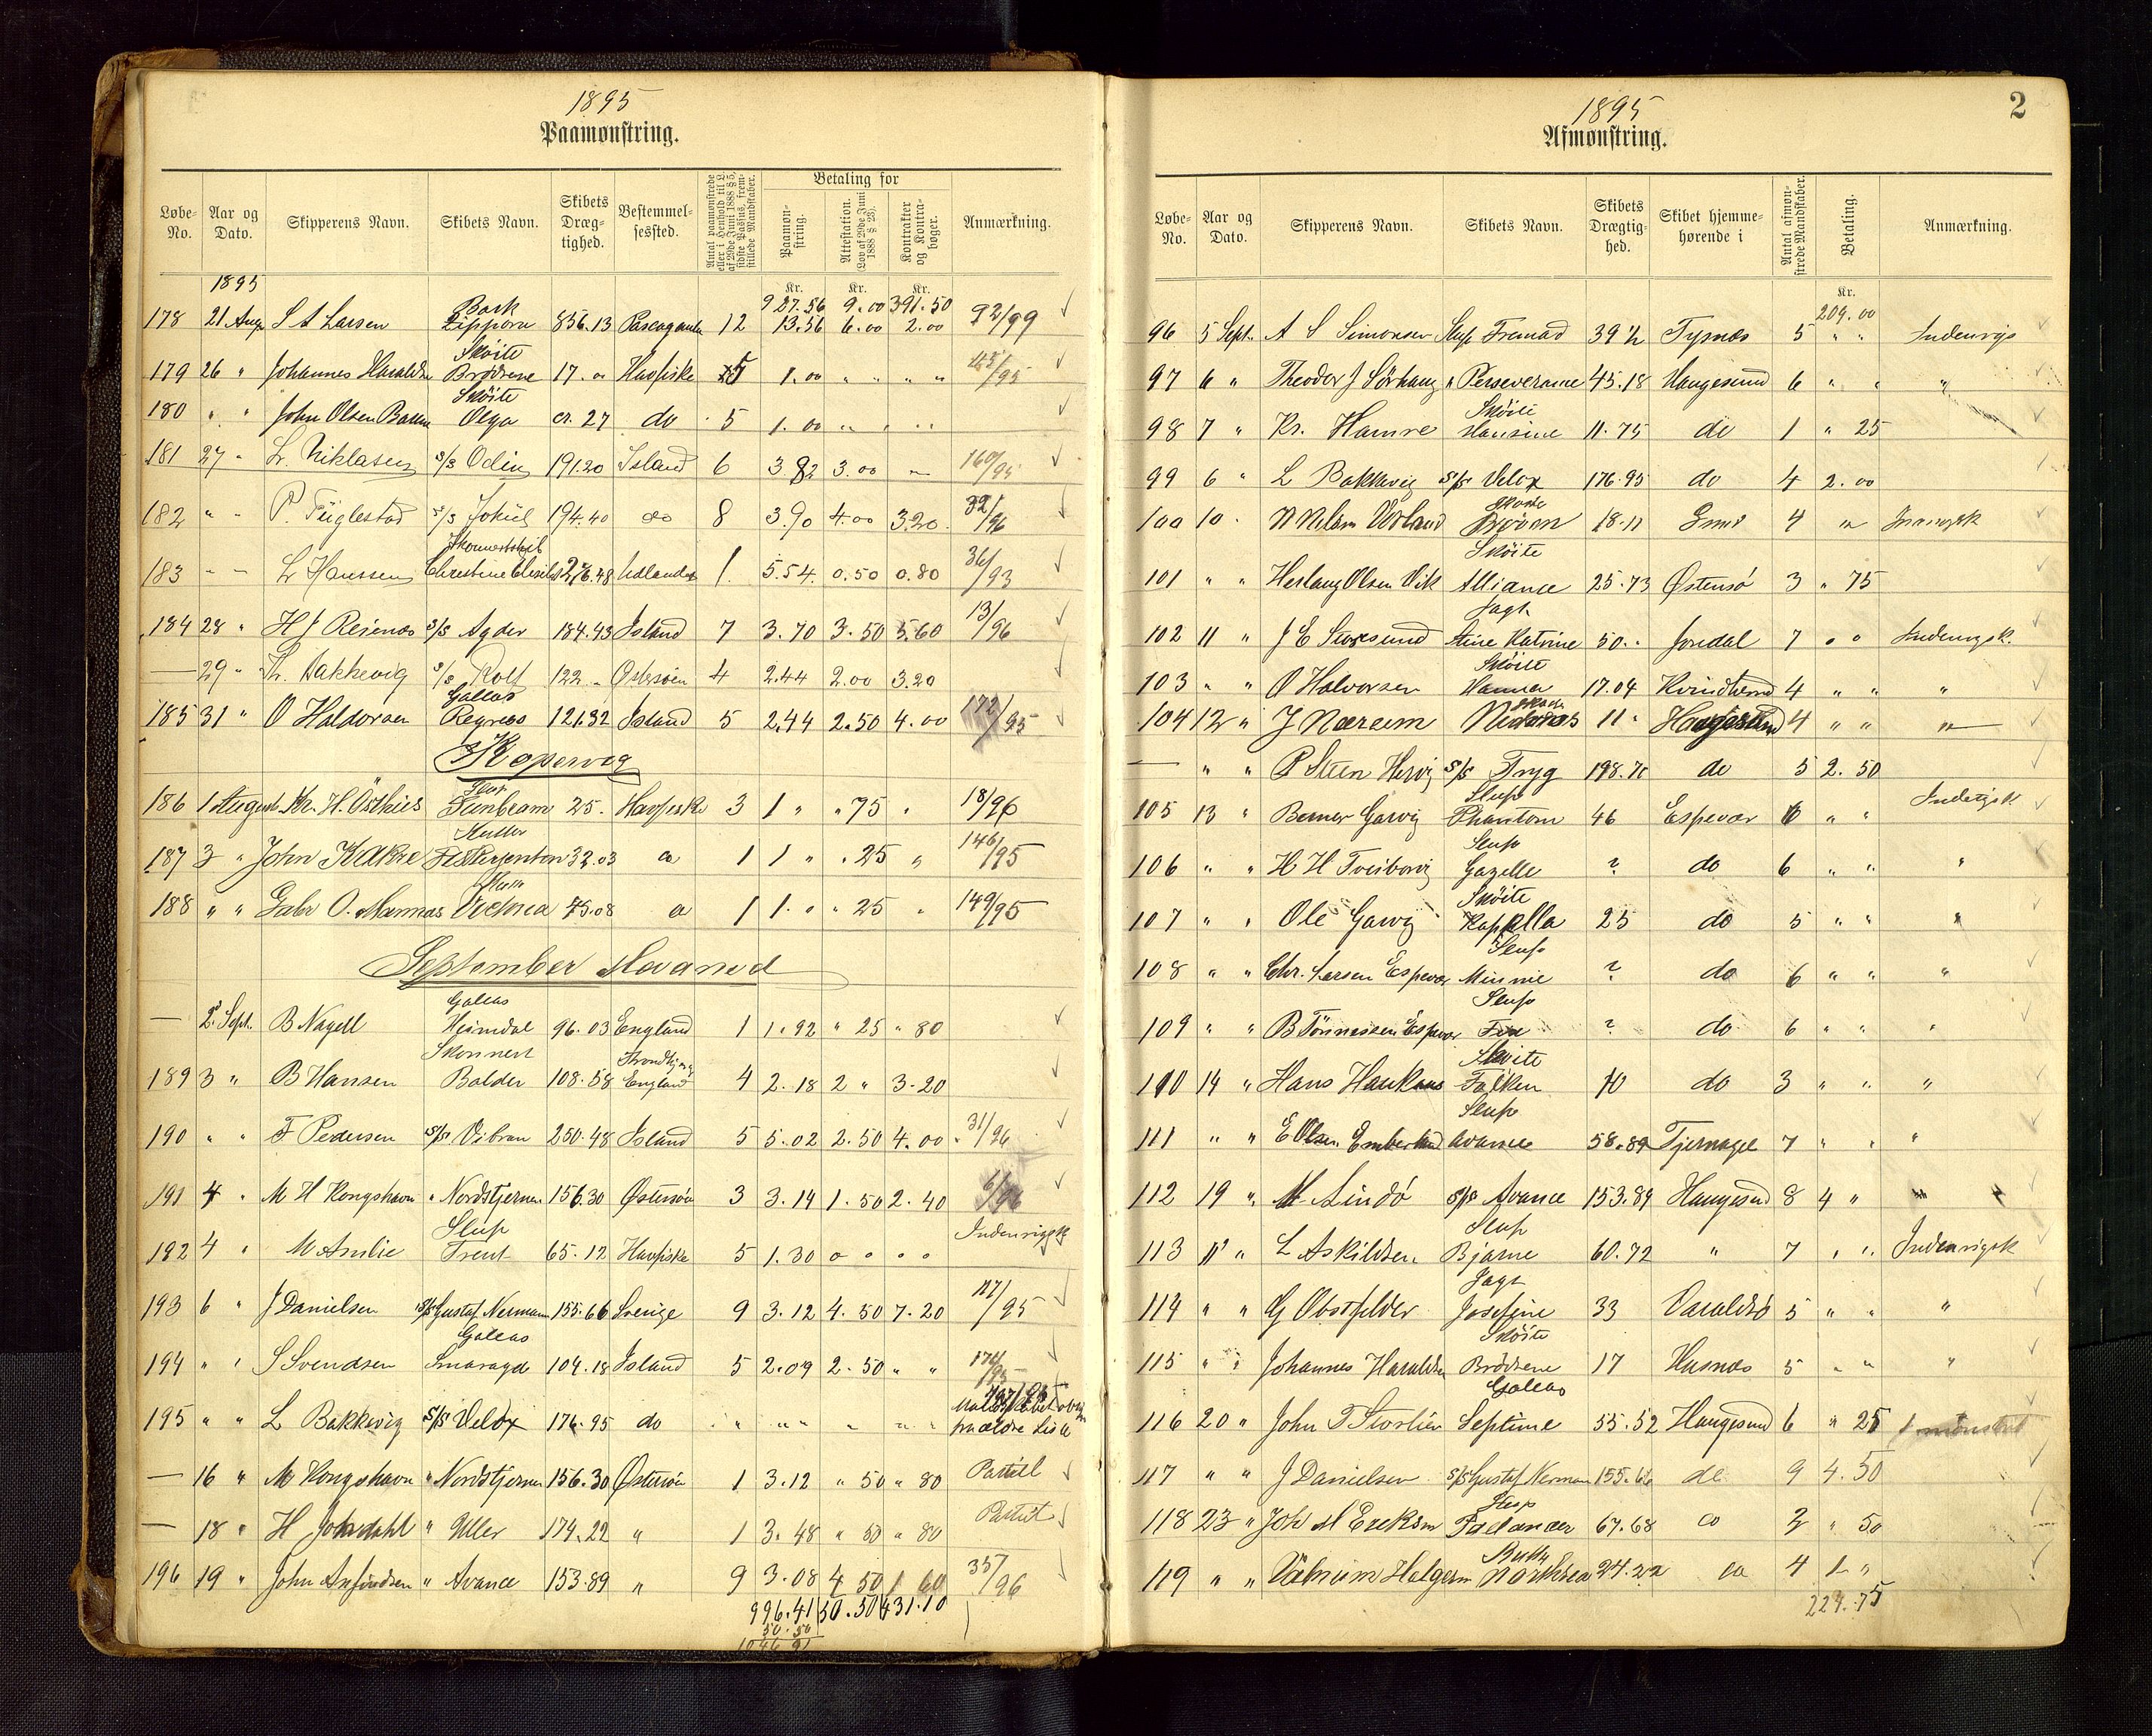 1895
Paamønstring.
Løbe-No. Aar og Dato. Skipperens Navn. Skibets Navn. Skibets Dræg-tighed. Bestemmel-sessted. Antal paamønstrede eller i Henhold til L. af 29de Juni 1888 § 5, sidste Passus, frem-stillede Mandskaber. Betaling for Paamøn-string. Attestation. (Lov af 29de Juni 1888 § 23). Kontrakter og Kontra-bøger. Anmærkning.
1895
Kr. Kr. Kr.
927.56 9.00 391.50
178 21 Aug S A Larsen Bark Zippora 856.13 Pascagoula 12 13.56 6.00 2.00 92/99
179 26 " Johannes Haraldsen Skøite Brødrene 17. " Havfiske 5 1.00 " " " " 95
180 " " John Olsen Skøite Olga cr. 27 do 5 1.00 " " "
181 27 " L. Niklasen s/s Odin 191.20 Island 6 3.82 3.00 " 160/95
182 " " P. Füglestad s/s Jokul 194.40 do 8 3.90 4.00 3.20 32/96
183 " " L Hanssen Skonnertskib Christine 48 Udlandet 1. 5.54 0.50 0.80 36/93
184 28 " H J Reienæs s/s Agder 184.43 Island 7 3.70 3.50 5.60 13/96
— 29 " L. Bakkevig s/s Rolf 122 " Østersøen 4 2.44 2.00 3.20
185 31 " O Haldorsen Galeas Regnbo 121.32 Island 5 2.44 2.50 4.00 172/95
Kopervig
186 1 August Kr. H. Østhus 25. Havfiske 3 1 " " 75 " 18/96
187 3 " John K Kutter 32.03 do 1 1 " " 25 " 146/95
188 " " Gabr O. Mannes 75.08 do 1 1. " " 25 " 149/95
September Maaned
— 2. Sept. B Nagell Galeas Heimdal 96.03 England 1 1.92 " 25 " 80
189 3 " B Hansen Skonnert Balder 108.58 Trondhjem England 4 2.18 2 " 3.20
190 " " F Pedersen s/s Vibran 250.48 Island 5 5.02 2.50 4.00 31/96
191 4 " M H Kongshavn " Nordstjernen 156.30 Østersøen 3 3.14 1.50 2.40 6/96
192 4 " M Amlie Slup Trent 65.12 Havfiske 5 1.30 " " " " Indenrigsk
193 6 " J Danielsen s/s Gustaf Nerman 155.66 Sverige 9 3.12 4.50 7.20 117/95
194 " " S Svendsen Galeas Smaragd 104.18 Island 5 2.09 2.50 " " 174/95
195 " " L Bakkevig s/s Velox 176.95 do " " " " " " fra ældre Liste
— 16 " M Kongshavn " Nordstjernen 156.30 Østersøen 1 3.12 " 50 " 80 Partiel
— 18 " H Jondahl " Uller 174.22 " 1 3.48 " 50 " 80 Partiel
196 19 " John Anfindsen " Avance 153.89 " 9 3.08 4 50 1 60 35/96
996.41 50.50 431.10
50.50
1046 91
2
1895
Afmønstring.
Løbe-No. Aar og Dato. Skipperens Navn. Skibets Navn. Skibets Drægtig-hed. Skibet hjemme-hørende i Antal afmøn-strede Mandskaber. Betaling. Anmærkning.
Kr.
209.00
96 5 Sept. A S Simonsen Slup Fremad 39 ½ Tysnæs 5 " " Indenrigs
97 6 " Theodor J Sørhaug " Perseverance 45.18 Haugesund 6 " " "
98 7 " Kr. Hamre Skøite Hansine 11.75 do 1 " 25
99 6 " L Bakkevig s/s Velox 176.95 do 4 2.00
100 10 " N Nilsen Skøite 18.11 4 "
101 " " Herlaug Olsen Vik Skøite Alliance 25.73 Østensö 3 " 75
102 11 " J E Storesund Jagt Stine Katrine 50. " Jondal 7 " " Indenrigsk.
103 " " O Halvorsen Skøite Hanna 17.04 Kvindherred 4 " " "
104 12 " J Næreim Skøite 11 " Haugesund 4 " " "
— " " P Steen Hervig s/s Tryg 198.70 do 5 2.50
105 13 " Berner Garvig Slup Phantom 46 Espevær 6 " " Indenrigsk
106 " " H H Tveiborvig Slup Gazelle ? do 6 " " "
107 " " Ole Garvig Skøite Kapella 25 do 5 " " "
108 " " Chr. Larsen Espevær Slup Minnie ? do 6 " " "
109 " " B Tönnessen Espevær Slup ? do 6 " " "
110 14 " Hans Haukaas Skøite Falken 10 do 3 " " "
111 " " E Olsen Emberland Slup Avance 58.89 Tjernagel 7 " " "
112 19 " M Lindö s/s Avance 153.89 Haugesund 8 4 "
113 " " L Askildsen Slup Bjarne 60.72 " 7 " " Indenrigsk
114 " " G Obstfelder Jagt Josefine 33 Varaldsö 5 " " "
115 " " Johannes Haraldsen Skøite Brödrene 17 Husnæs 5 " " "
116 20 " John T Storlien Galeas Septime 55.52 Haugesund 6 " 25
117 " " J Danielsen s/s Gustaf Nerman 155.66 do 9 4.50
118 23 " Joh M Ereksen Slup 67.68 do 2 " 50
119 " " 24.22 do 4 1 "
224.75